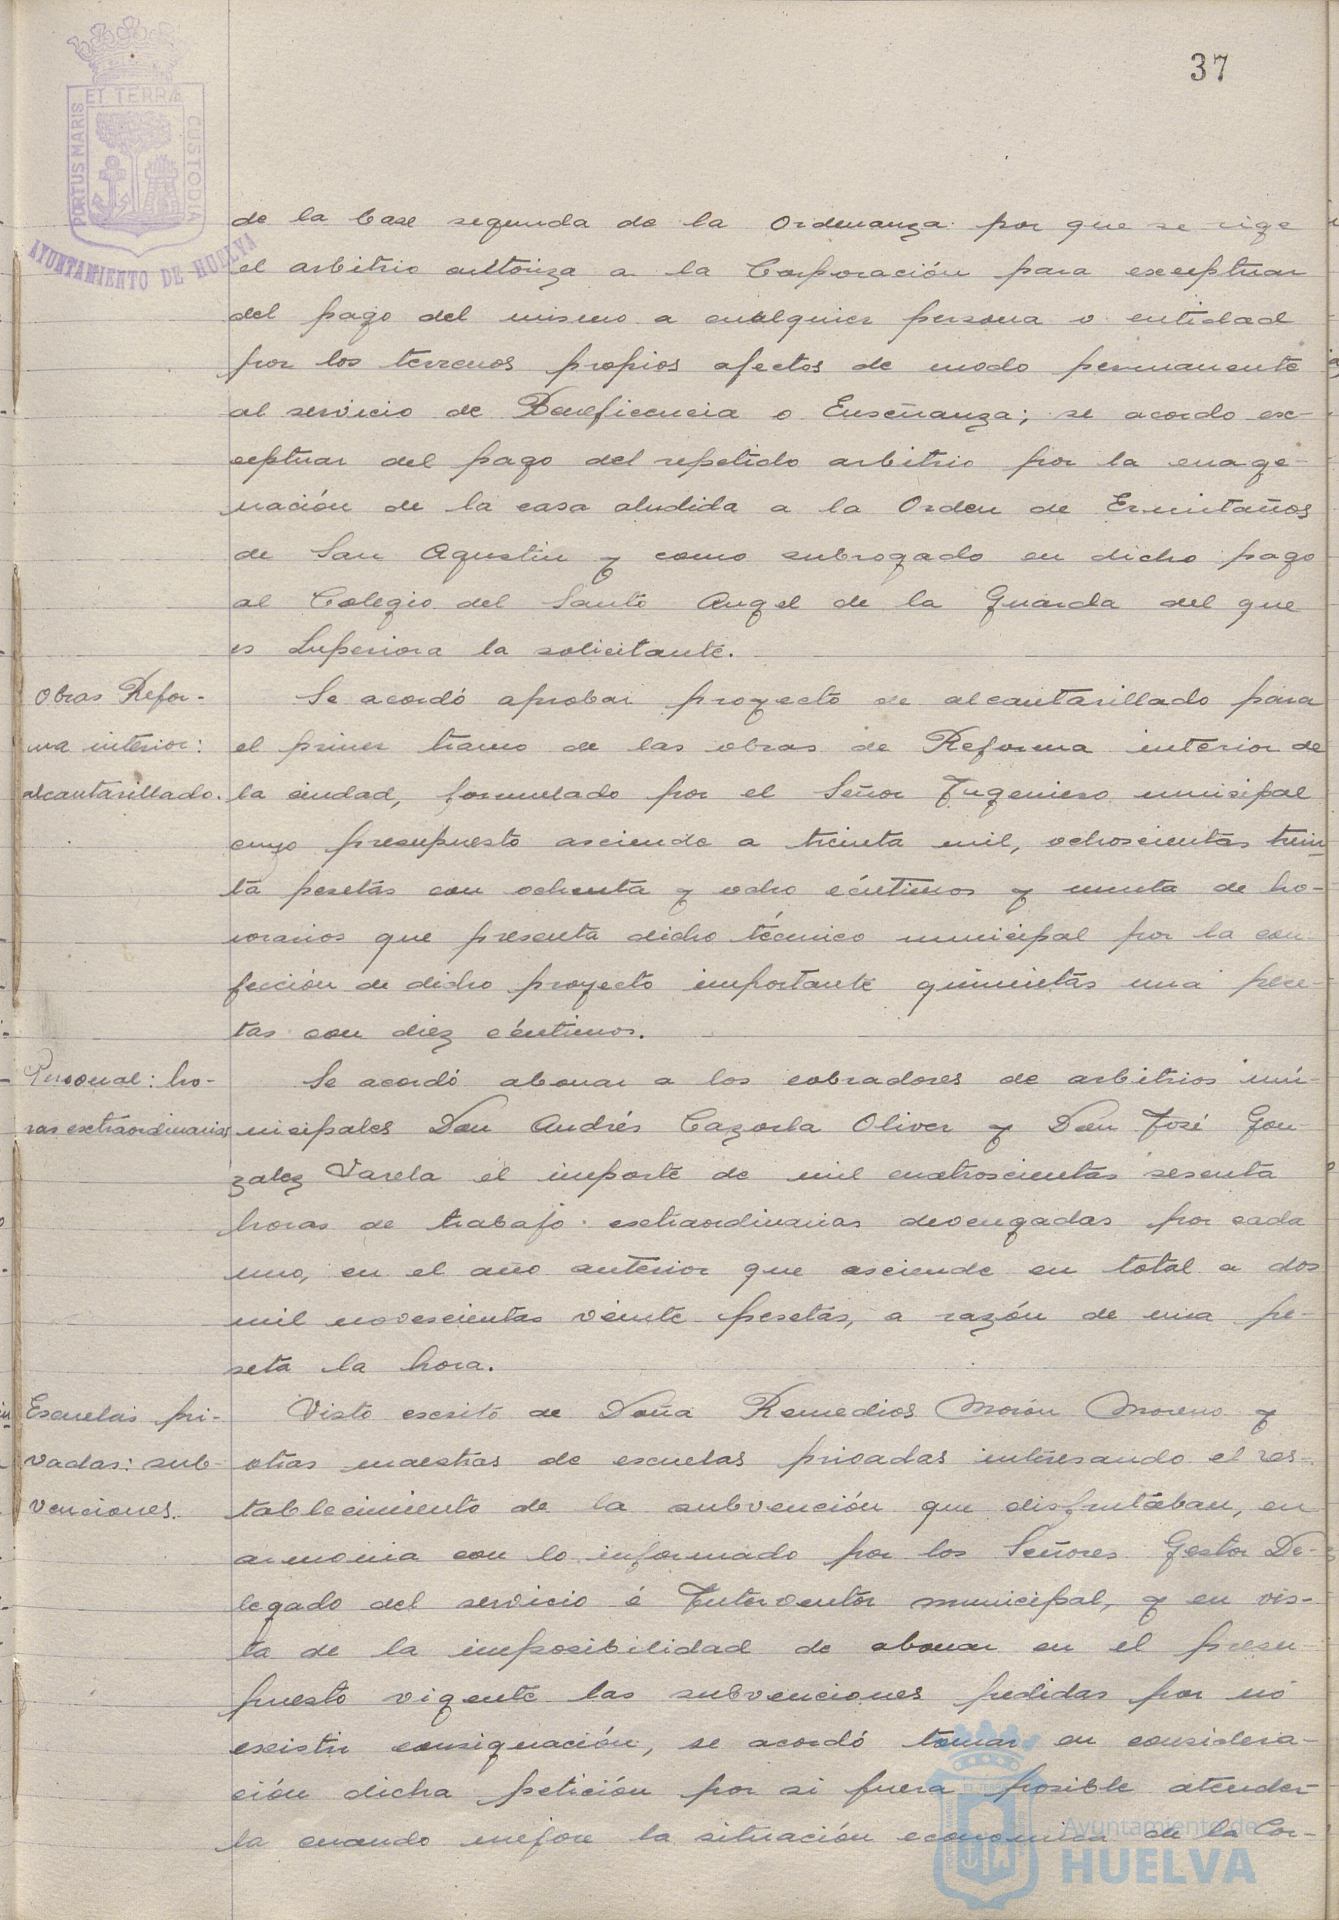 37
PORTUS MARIS ET TERRÆ CUSTODIA
AYUNTAMIENTO DE HUELVA
de la base segunda de la Ordenanza por que se rige
el arbitrio autoriza a la Corporación para exceptuar
del pago del mismo a cualquier persona o entidad
por los terrenos propios afectos de modo permanente
al servicio de Beneficencia o Enseñanza; se acordo ex-
ceptuar del pago del repetido arbitrio por la enage-
nación de la casa aludida a la Orden de Ermitaños
de San Agustin y como subrogado en dicho pago
al Colegio del Santo Angel de la Guarda del que
es Superiora la solicitante.
Obras Refor-
ma interior:
alcantarillado.
Se acordó aprobar proyecto de alcantarillado para
el primer tramo de las obras de Reforma interior de
la ciudad, formulado por el Señor Ingeniero municipal
cuyo presupuesto asciende a treinta mil, ochoscientas trein-
ta pesetas con ochenta y ocho céntimos y minuta de ho-
norarios que presenta dicho técnico municipal por la con-
fección de dicho proyecto importante quinientas una pese-
tas con diez céntimos.
Personal: ho-
ras extraordinarias
Se acordó abonar a los cobradores de arbitrios mu-
nicipales Don Andrés Cazorla Oliver y Don José Gon-
zalez Varela el importe de mil cuatroscientas sesenta
horas de trabajo extraordinarias devengadas por cada
uno, en el año anterior que asciende en total a dos
mil novescientas veinte pesetas, a razón de una pe-
seta la hora.
Escuelas pri-
vadas: sub-
venciones.
Visto escrito de Doña Remedios Morón Moreno y
otras maestras de escuelas privadas interesando el res-
tablecimiento de la subvención que disfrutaban, en
armonia con lo informado por los Señores Gestor De-
legado del servicio é Interventor municipal, y en vis-
ta de la imposibilidad de abonar en el presu
puesto vigente las subvenciones pedidas por no
existir consignación, se acordó tomar en considera-
ción dicha petición por si fuera posible atender-
la cuando mejore la situación economica de la Cor-
Ayuntamiento de
HUELVA